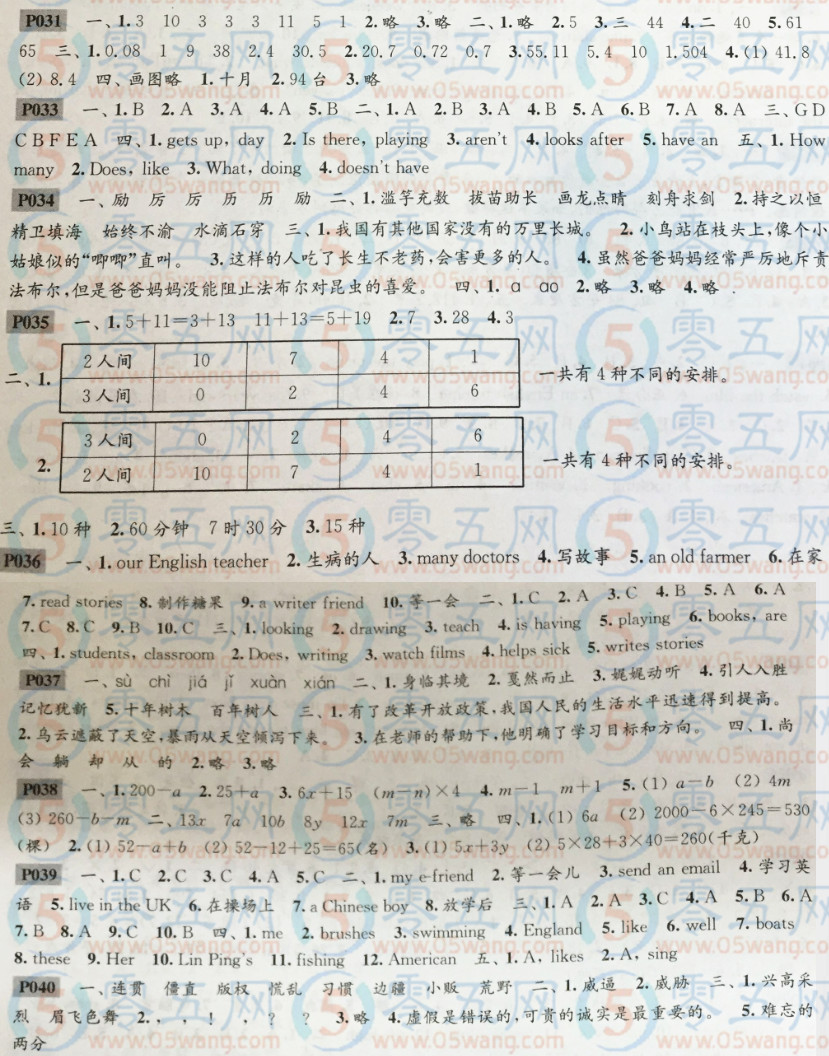 P031 一、1.3 10 3 3 3 11 5 1 2.略 3.略 二、1.略 2.5 3.三 44 4.二 40 5.61
65 三、1.0.08 1 9 38 2.4 30.5 2.20.7 0.72 0.7 3.55.11 5.4 10 1.504 4.(1) 41.8
(2) 8.4 四、画图略 1.十月 2.94台 3.略
P033 一、1.B 2.A 3.A 4.A 5.B 二、1.A 2.B 3.A 4.B 5.A 6.B 7.A 8.A 三、G D
C B F E A 四、1.gets up, day 2.Is there, playing 3.aren't 4.looks after 5.have an 五、1.How
many 2.Does, like 3.What, doing 4.doesn't have
P034 一、励 厉 厉 历 历 励 二、1.滥竽充数 拔苗助长 画龙点睛 刻舟求剑 2.持之以恒
精卫填海 始终不渝 水滴石穿 三、1.我国有其他国家没有的万里长城。 2.小鸟站在枝头上,像个小
姑娘似的“唧唧”直叫。 3.这样的人吃了长生不老药,会害更多的人。 4.虽然爸爸妈妈经常严厉地斥责
法布尔,但是爸爸妈妈没能阻止法布尔对昆虫的喜爱。 四、1.ɑ ɑo 2.略 3.略 4.略
P035 一、1.5+11=3+13 11+13=5+19 2.7 3.28 4.3
二、1. 2人间 10 7 4 1
3人间 0 2 4 6
一共有4种不同的安排。
2. 3人间 0 2 4 6
2人间 10 7 4 1
一共有4种不同的安排。
三、1.10种 2.60分钟 7时30分 3.15种
P036 一、1.our English teacher 2.生病的人 3.many doctors 4.写故事 5.an old farmer 6.在家
7.read stories 8.制作糖果 9.a writer friend 10.等一会 二、1.C 2.A 3.C 4.B 5.A 6.A
7.C 8.C 9.B 10.C 三、1.looking 2.drawing 3.teach 4.is having 5.playing 6.books, are
四、1.students, classroom 2.Does, writing 3.watch films 4.helps sick 5.writes stories
P037 一、sù chì jiá jǐ xuàn xián 二、1.身临其境 2.戛然而止 3.娓娓动听 4.引人入胜
记忆犹新 5.十年树木 百年树人 三、1.有了改革开放政策,我国人民的生活水平迅速得到提高。
2.乌云遮蔽了天空,暴雨从天空倾泻下来。 3.在老师的帮助下,他明确了学习目标和方向。 四、1.尚
会 躺 却 从 的 2.略 3.略
P038 一、1.200−a 2.25+a 3.6x+15 (m−n)×4 4.m−1 m+1 5.(1) a−b (2) 4m
(3) 260−b−m 二、13x 7a 10b 8y 12x 7m 三、略 四、1.(1) 6a (2) 2000−6×245=530
(棵) 2.(1) 52−a+b (2) 52−12+25=65(名) 3.(1) 5x+3y (2) 5×28+3×40=260(千克)
P039 一、1.C 2.C 3.C 4.A 5.C 二、1.my e-friend 2.等一会儿 3.send an email 4.学习英
语 5.live in the UK 6.在操场上 7.a Chinese boy 8.放学后 三、1.A 2.A 3.C 4.A 5.B 6.A
7.B 8.A 9.C 10.B 四、1.me 2.brushes 3.swimming 4.England 5.like 6.well 7.boats
8.these 9.Her 10.Lin Ping's 11.fishing 12.American 五、1.A, likes 2.A, sing
P040 一、连贯 僵直 版权 慌乱 习惯 边疆 小贩 荒野 二、1.威逼 2.威胁 三、1.兴高采
烈 眉飞色舞 2., , ! , ? ? 3.略 4.虚假是错误的,可贵的诚实是最重要的。 5.难忘的
两分